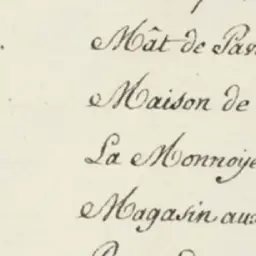 Mât de Pav
Maison de
La Monnoye
Magasin aux